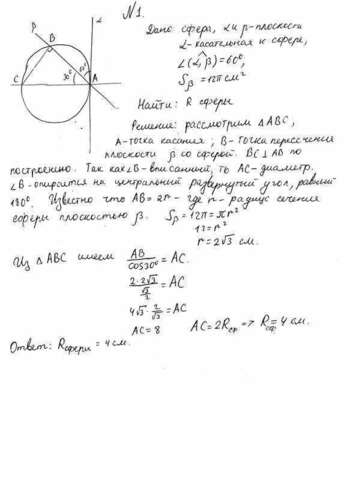 N1.
Дано: сфера, α и β-плоскости
α-касательная к сфере,
∠(α,β)=60°,
Sβ=12π см²
Найти: R сферы
β
α
B
30°
60°
C
A
Решение: рассмотрим △ABC,
A-точка касания; B-точка пересечения
плоскости β со сферой. BC⊥AB по
построению. Так как ∠B-вписанный, то AC-диаметр.
∠B-опирается на центральный развернутый угол, равный
180°. Известно что AB=2r - где r- радиус сечения
сферы плоскостью β. Sβ=12π=πr²
12=r²
r=2√3 см.
Из △ABC имеем AB/cos30° = AC
2·2√3/(√3/2) = AC
4√3·2/√3=AC
AC=8 AC=2Rсф => Rсф=4 см.
Ответ: Rсферы=4см.